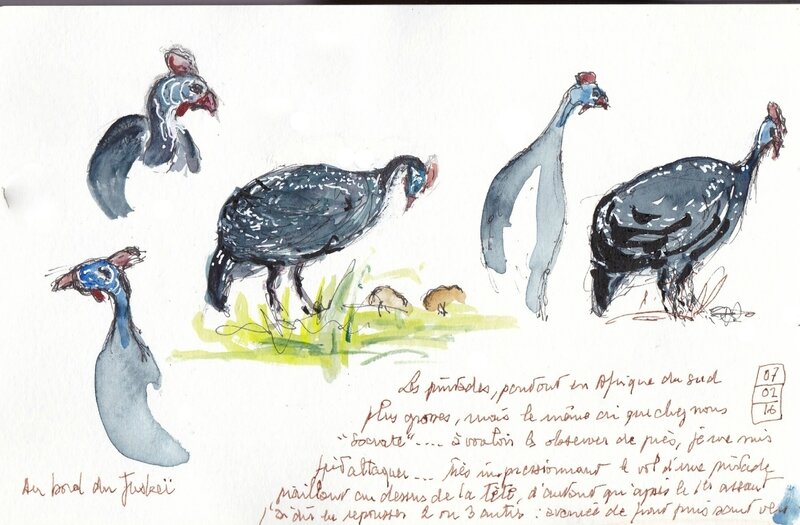 Les pintades, partout en Afrique du sud
plus grosses, mais le même cri que chez nous
.... à vouloir les observer de près, je me suis
fait attaquer... très impressionnant le vol d'une pintade
piaillant au dessus de la tête, d'autant qu'après le 1er assaut
j'ai dû en repousser 2 ou 3 autres : avancée de front puis saut
07
02
16
Au bord du Juskeï